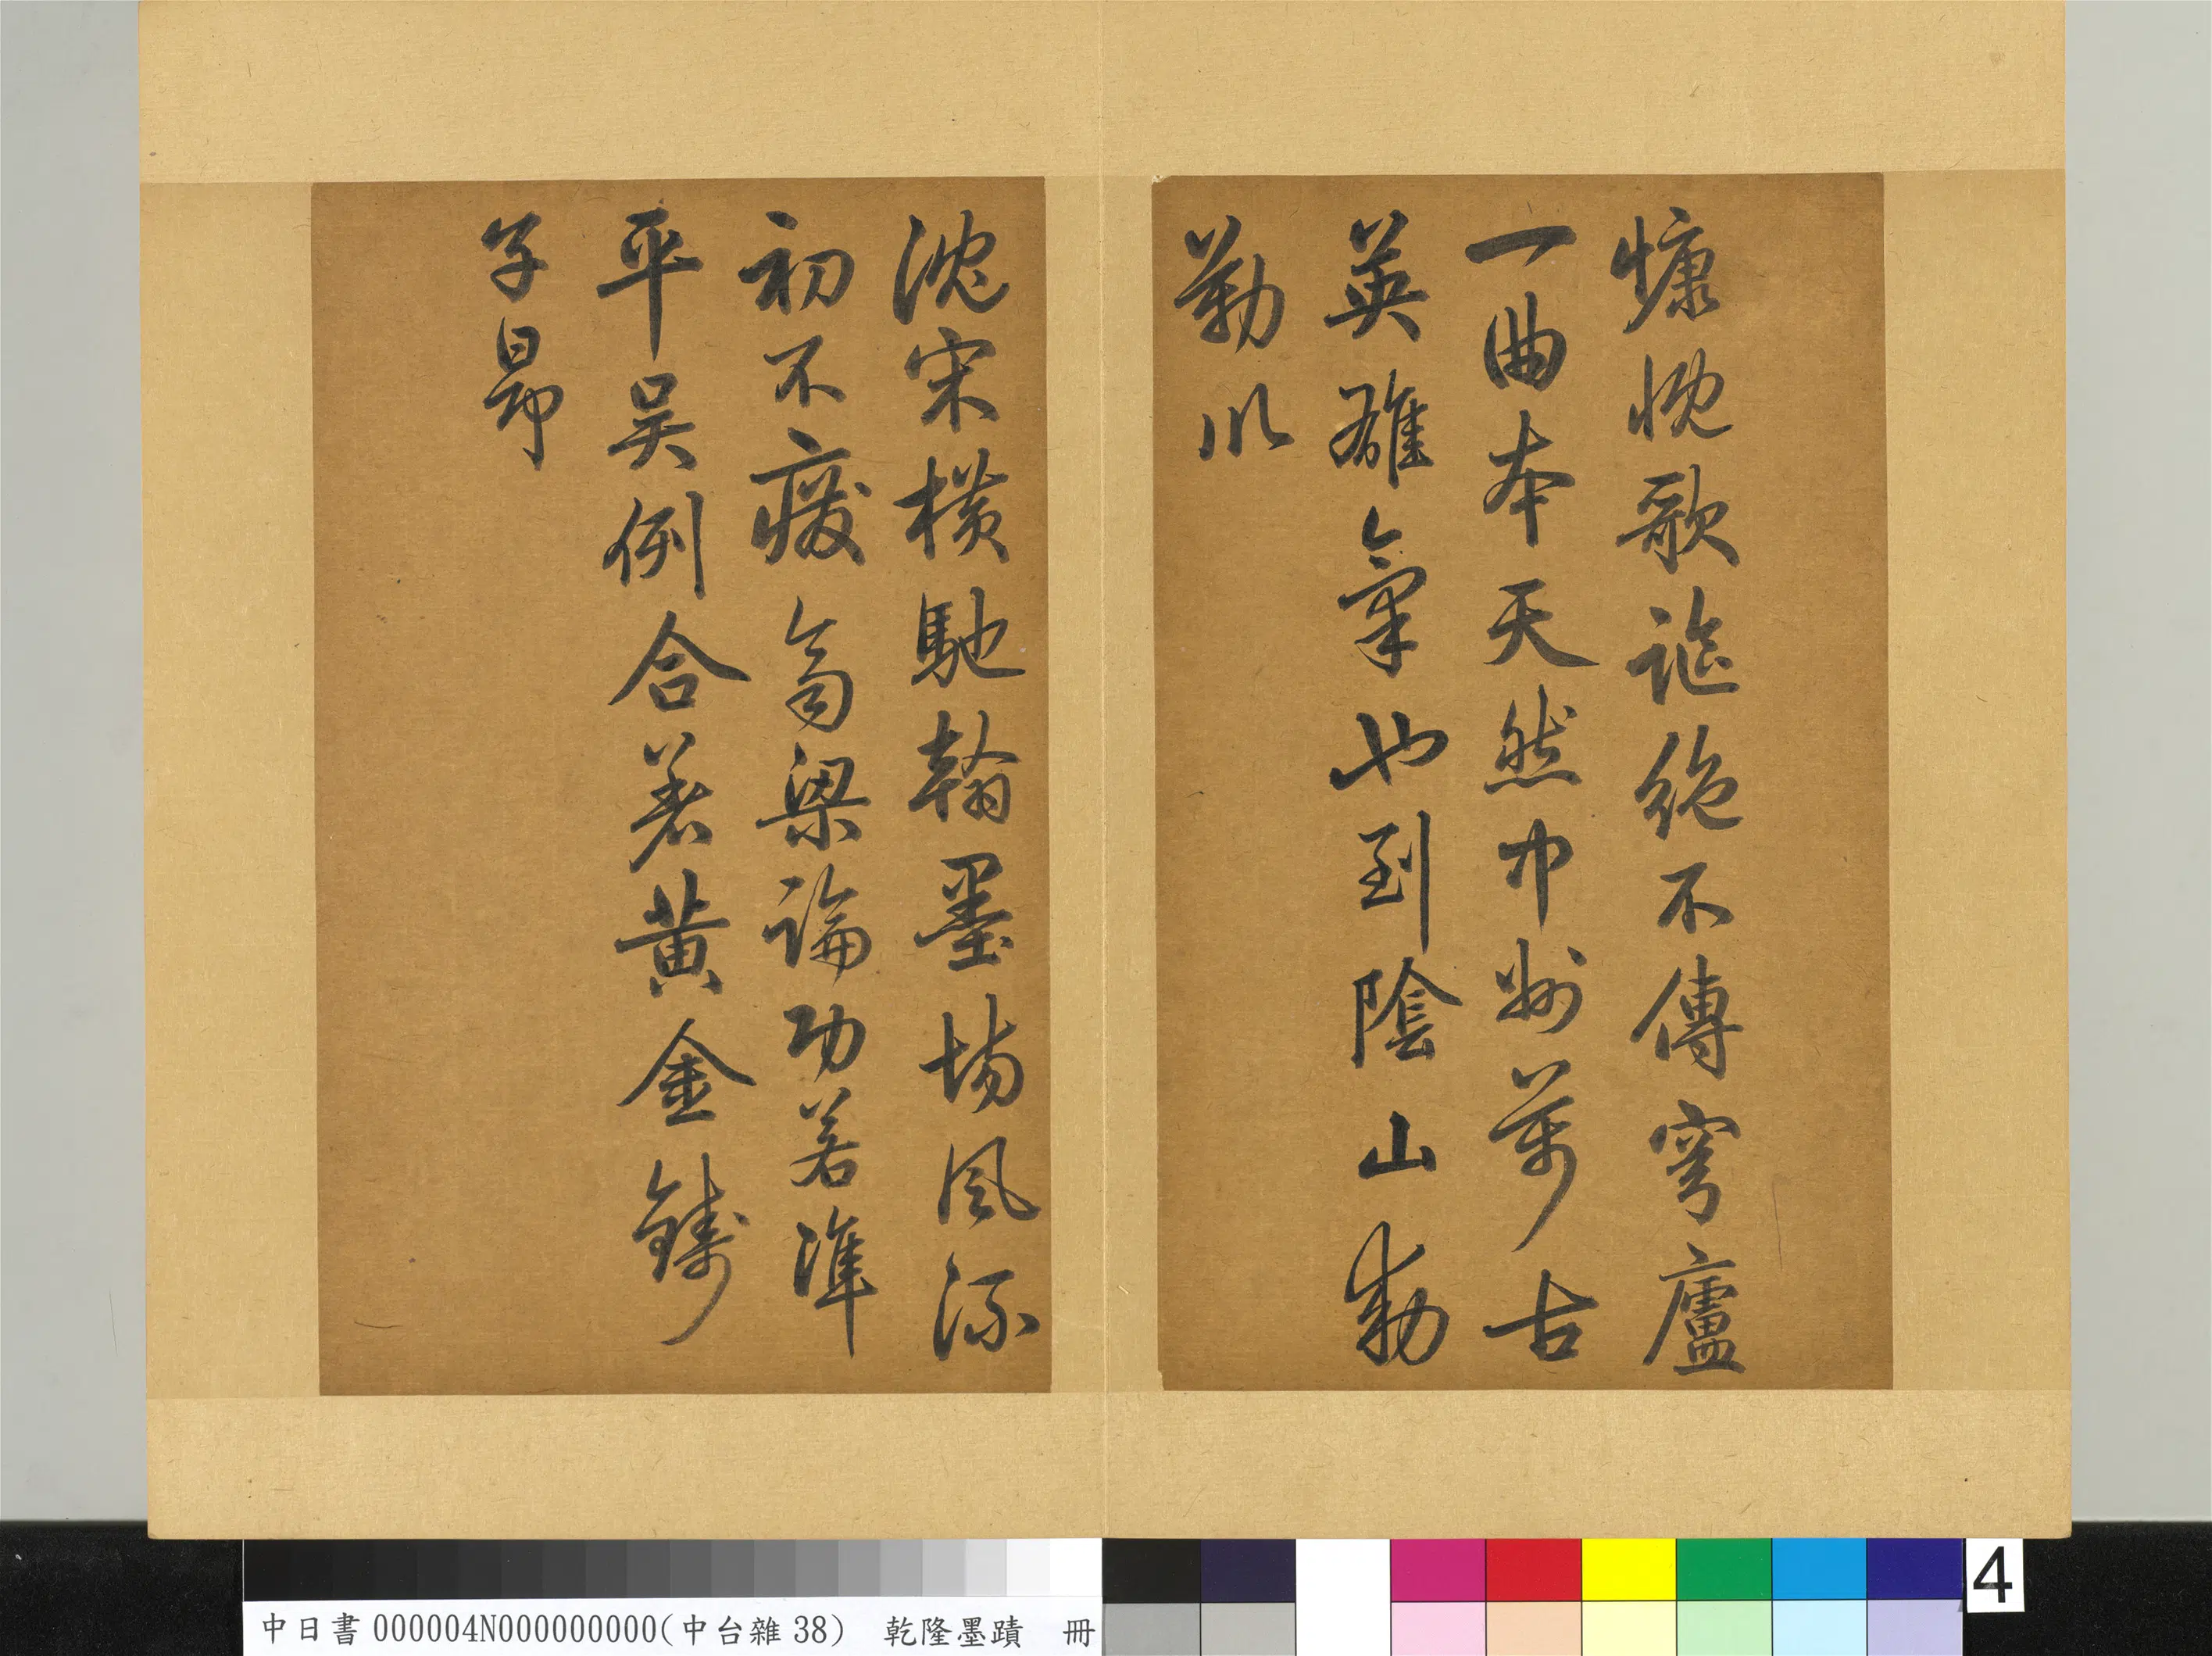 慷慨歌謠絶不傳穹廬
一曲本天然中州萬古
英雄氣也到陰山勑
勒川
沈宋橫馳翰墨場風流
初不廢齊梁論功若準
平吳例合著黃金鑄
子昻
中日書000004N000000000(中台雜38) 乾隆墨蹟 冊
4